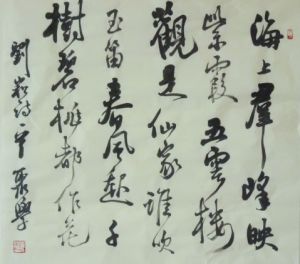 海上羣峰映
紫霞五雲樓
觀是仙家誰吹
玉笛春風起千
樹碧桃都作花
劉崧詩一